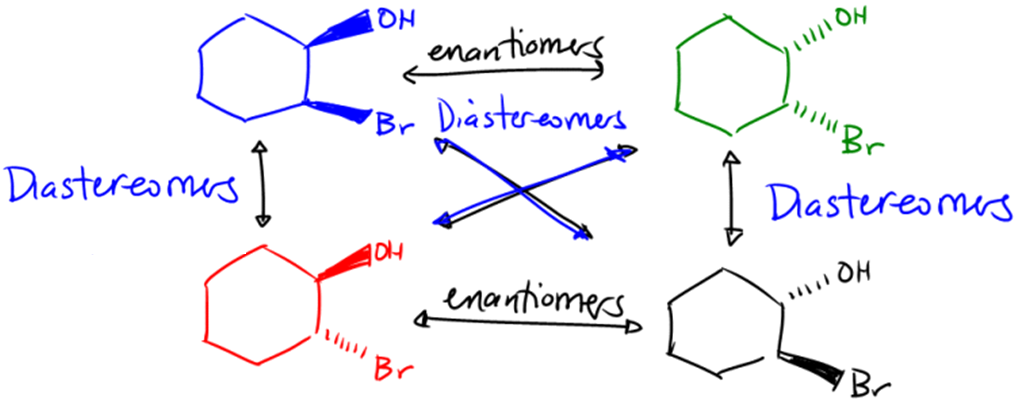 OH
enantiomers
OH
Br
Diastereomers
Br
Diastereomers
Diastereomers
OH
enantiomers
OH
Br
Br